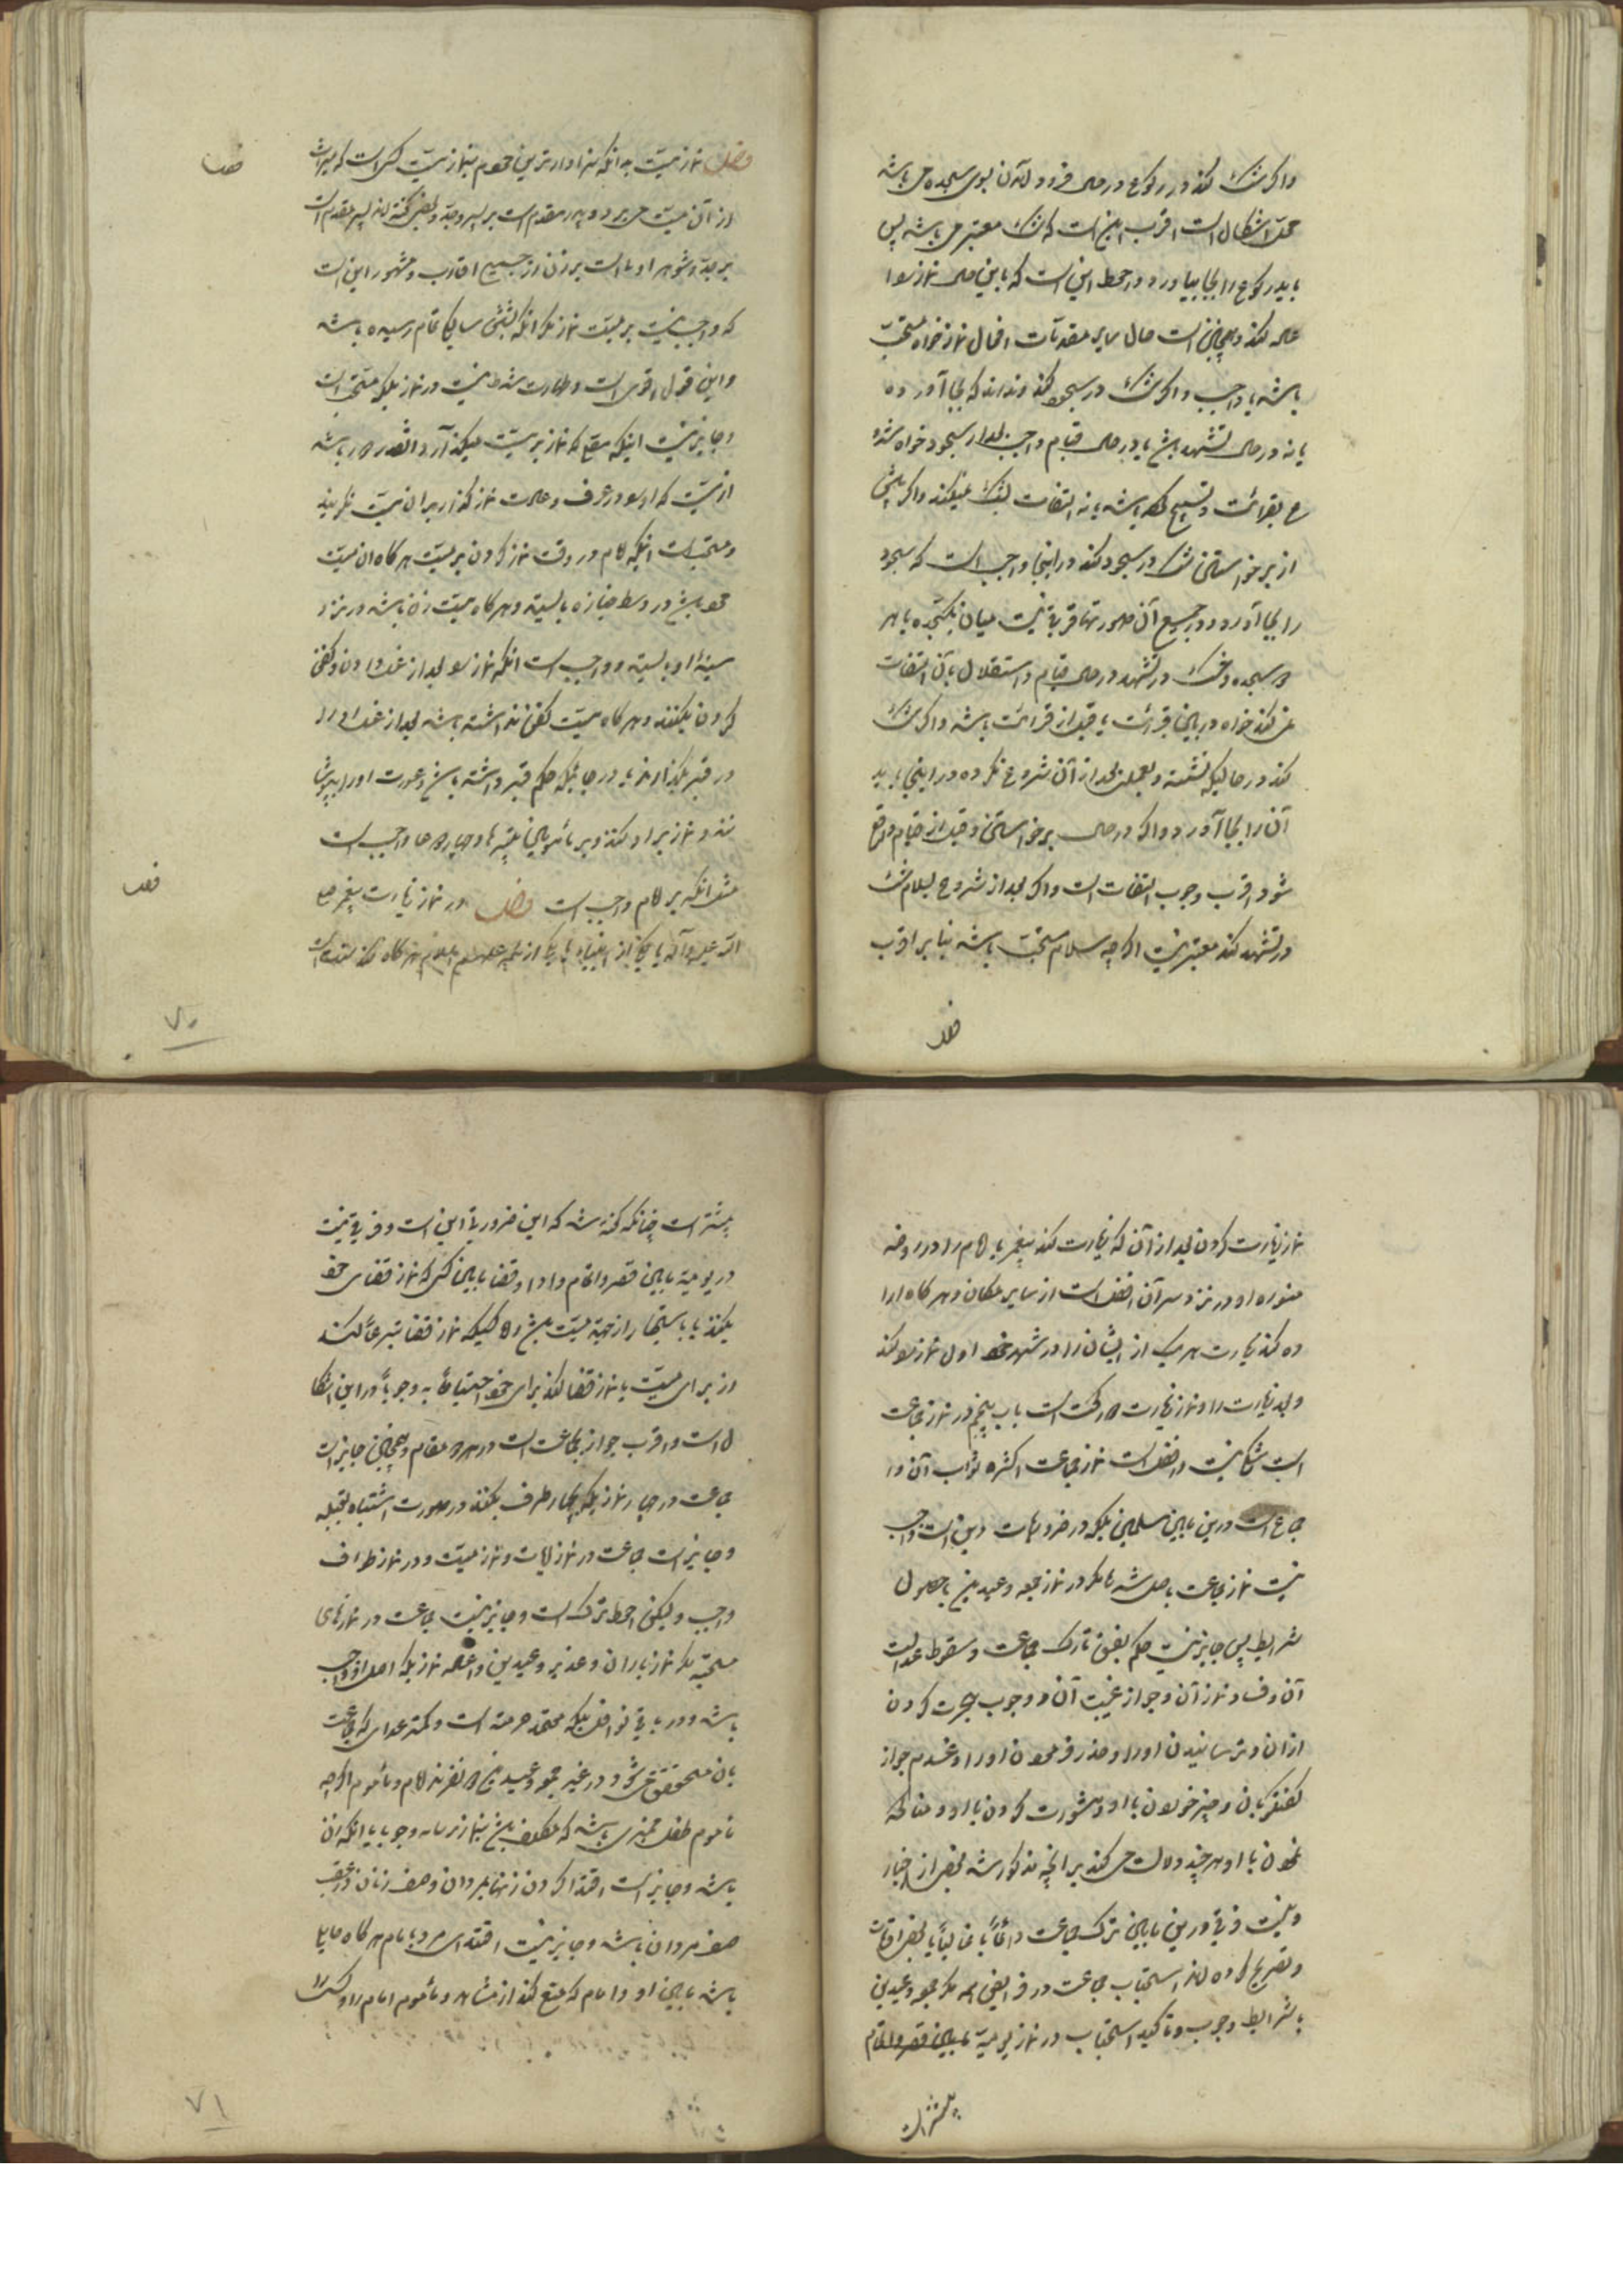 واکر شک کند در رکوع در حال فرود آمدن بسوی سجده می باشد
محل اشکال است اقرب این است که شک معتبر می باشد پس
باید رکوع را بجا بیاورد و احوط این است که باین حال نماز را
کند و همچنین است حال سایر مقدمات افعال نماز خواه مستحب
باشد یا واجب و اگر شک در سجود کند و نداند که بجا آورده
یا نه در حال تشهد باشد یا در حال قیام واجب بعد از سجود خواه شروع
بقرائت و تسبیح کرده باشد یا نه التفات بشک نمیکند و اگر پیش
از برخواستن شک در سجود کند در اینجا واجب است که سجود
را بجا آورد و در جمیع آن صورتها فرقی نیست میان یک سجده یا هر
دو سجده و شک در تشهد در حال قیام و استقلال بآن التفات
نمی کند خواه در بین قرائت یا قبل از قرائت باشد و اگر شک
کند در حالیکه نشسته و بعمل بعد از آن شروع نکرده در اینجا باید
آن را بجا آورد و اگر در حال برخواستن و قبل از قیام واقع
شود اقرب وجوب التفات است و اگر بعد از شروع بسلام شک
در تشهد کند معتبر نیست اگر چه سلام مستحب باشد بنا بر اقرب
فصل
فصل نماز میت بدانکه سزاوارترین مردم بنماز میت کسی است که میراث
از آن میت می برد و پدر مقدم است بر پسر و جد و بعضی گفته اند پسر مقدم است
بر جد و شوهر اولی است بر زن از جمیع اقارب و مشهور این است
که واجب نیست بر میت نماز مگر آنکه شش سالگی تمام رسیده باشد
و این قول اقوی است و طهارت شرط نیست در نماز بلکه مستحب است
و جایز نیست اینکه نماز بر میت میکند آن قدر دور باشد
از میت که او را در عرف و عادت نماز گذار بر آن میت نگویند
و مستحب است اینکه امام در وقت نماز کردن بر میت هر گاه آن میت
مرد باشد در وسط جنازه بایستد و هر گاه میت زن باشد در نزد
سینه او بایستد و واجب است آنکه نماز را بعد از غسل دادن و کفن
کردن بکنند و هر گاه میت کفن نداشته باشد بعد از غسل او را
در قبر بگذارند یا در جائیکه حکم قبر داشته باشد و عورت او را بپوشا
نند و نماز بر او کنند و بر مأمومین تکبیرها و چهار دعا واجب است
مثل آنکه بر امام واجب است فصل در نماز زیارت پیغمبر صلی
الله علیه و آله یا یکی از انبیاء یا یکی از ائمه علیهم السلام هر گاه کند
فصل
فصل
۷۰
نماز زیارت کردن بعد از آن که زیارت کند پیغمبر یا امام را در روضه
منوره او در نزد سر آن افضل است از سایر مکان و هر گاه ارا
ده کند زیارت هر یک از ایشان را در شهر خود اول نماز را کند
و بعد زیارت را و نماز زیارت دو رکعت است باب پنجم در نماز جماعت
است شکی نیست در فضیلت نماز جماعت و کثرة ثواب آن و
اجماع است در بین مسلمین بلکه در ضروریات دین است واجب
نیست نماز جماعت باصل شرع مگر در نماز جمعه و عیدین با حصول
شرایط پس جایز نیست حکم بفسق تارک جماعت و سقوط عدالت
آن و فساد نماز آن و جواز غیبت آن و وجوب هجرت کردن
از آن و ترسانیدن او را و حذر فرمودن او را و عدم جواز
کفتگو بآن و چیز خوردن با او و مشورت کردن با او و مناکحه
نمودن با او هر چند دلالت می کند بر آنچه مذکور شد بعضی از اخبار
و نیست فرقی در بین ترک جماعت دائماً یا غالباً یا بعض اوقات
و تصریح کرده اند استحباب جماعت در فرایض همه مگر جمعه و عیدین
با شرایط وجوب و تأکید استحباب در نماز یومیه مابین قصر و اتمام
بیشتر است
بیشتر است چنانکه گفته شد که این ضروریة این است و فرقی نیست
در یومیه مابین قصر و اتمام و ادا و قضا مابین کسی که نماز قضای خود
بکند یا باستیجار از جهة میت باشد و کسیکه نماز قضا تبرعاً کند
از برای میت یا نماز قضا کند برای خود احتیاطاً نه وجوباً و در این اشکا
ل است و اقرب جواز جماعت است در هر دو مقام و همچنین جایز است
جماعت در چهار نمازیکه بچهار طرف بکند در صورت اشتباه قبله
و جایز است جماعت در نماز آیات و نماز میت و در نماز طواف
واجب و لیکن احوط ترک است و جایز نیست جماعت در نمازهای
مستحبه مگر نماز باران و غدیر و عیدین و اعاده نماز یکه اصل او واجب
باشد و در باقی نوافل بلکه معتمد حرمت است و کمتر عددی که جماعت
بآن متحقق می شود در غیر جمعه و عیدین دو نفرند امام و مأموم اگر چه
مأموم طفل ممیزی باشد که مکلف باشد بنماز نرسیده وجوباً یا آنکه زن
باشد و جایز است اقتدا کردن زنها بمردان و صف زنان در عقب
صف مردان باشد و جایز نیست اقتدای مرد با امام هر گاه حایل
باشد مابین او و امام که منع کند از مشاهده مأموم امام را و کسی را
۷۱